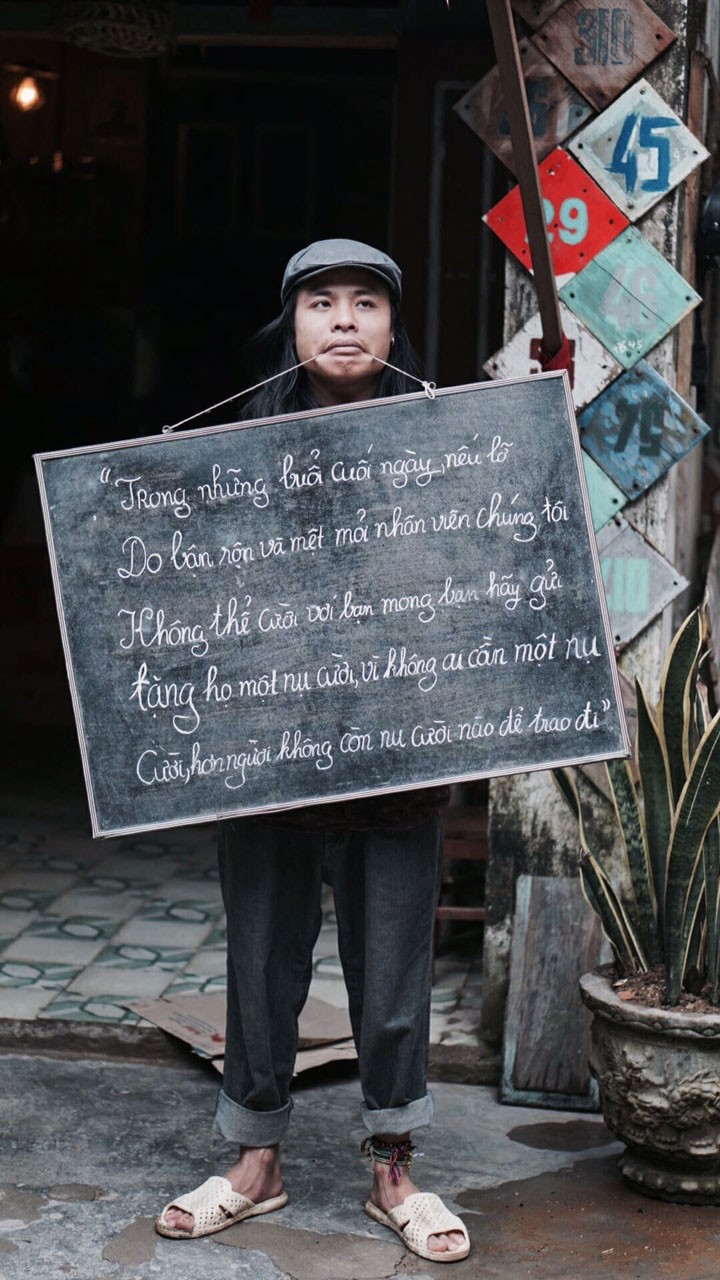 310
45
29
46
1845
79
310
"Trong những buổi cuối ngày, nếu lỡ
Do bận rộn và mệt mỏi nhân viên chúng tôi
Không thể cười với bạn mong bạn hãy gửi
tặng họ một nụ cười, vì không ai cần một nụ
Cười, hơn người không còn nụ cười nào để trao đi"